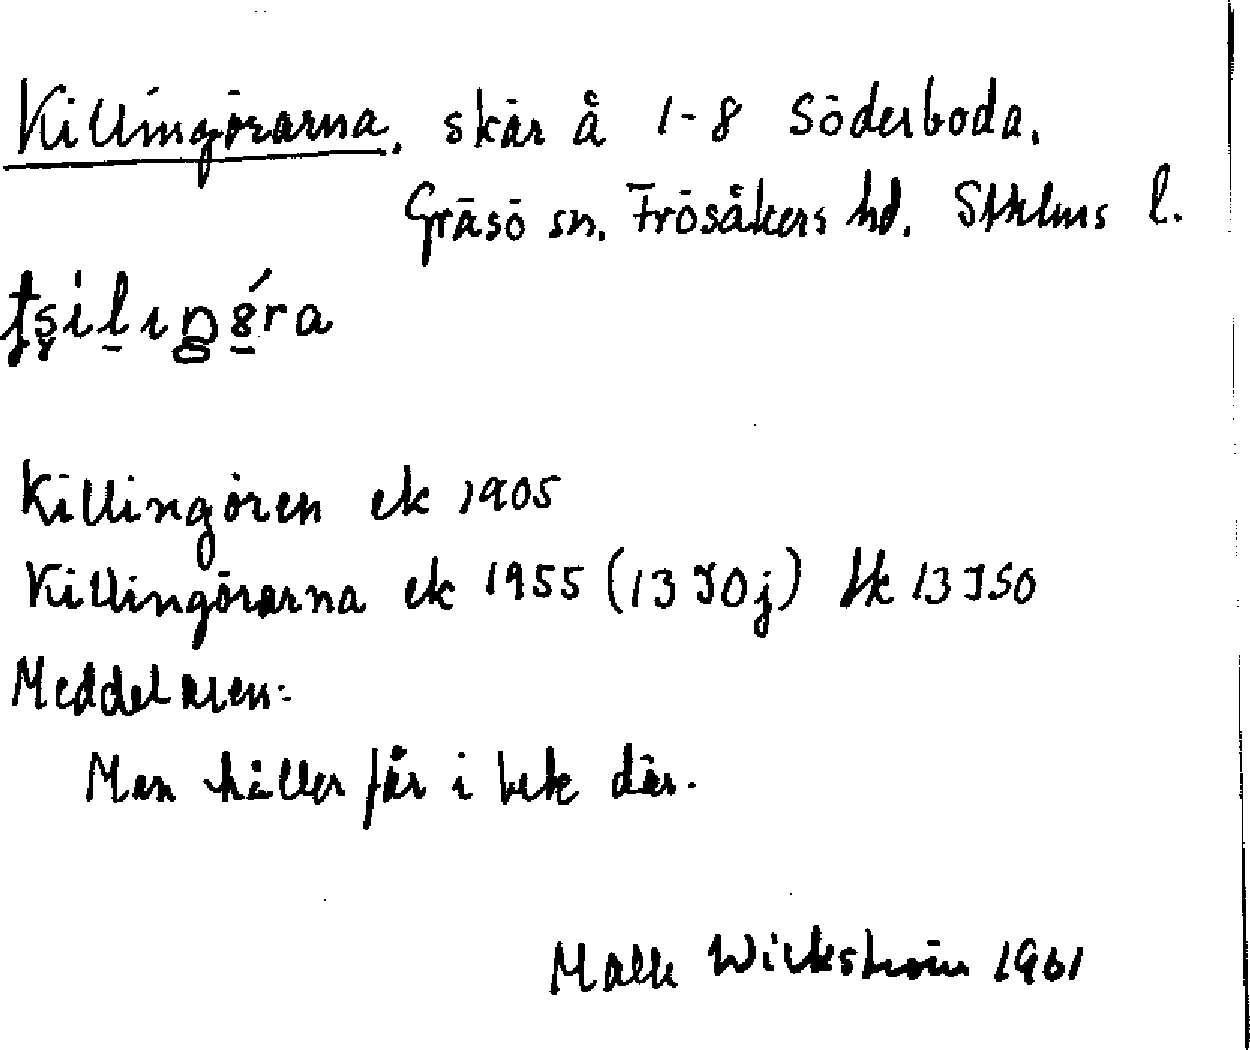 Killingörarna, skär å 1-8 Söderboda,
Gräsö sn. Frösåkers hd. Sthlms l.
Killingören ek 1905
Killingörarna ek 1955 (13 I 0 j) tk 13 I S0
Meddelaren:
Man håller får i bete där.
Wickström 1961